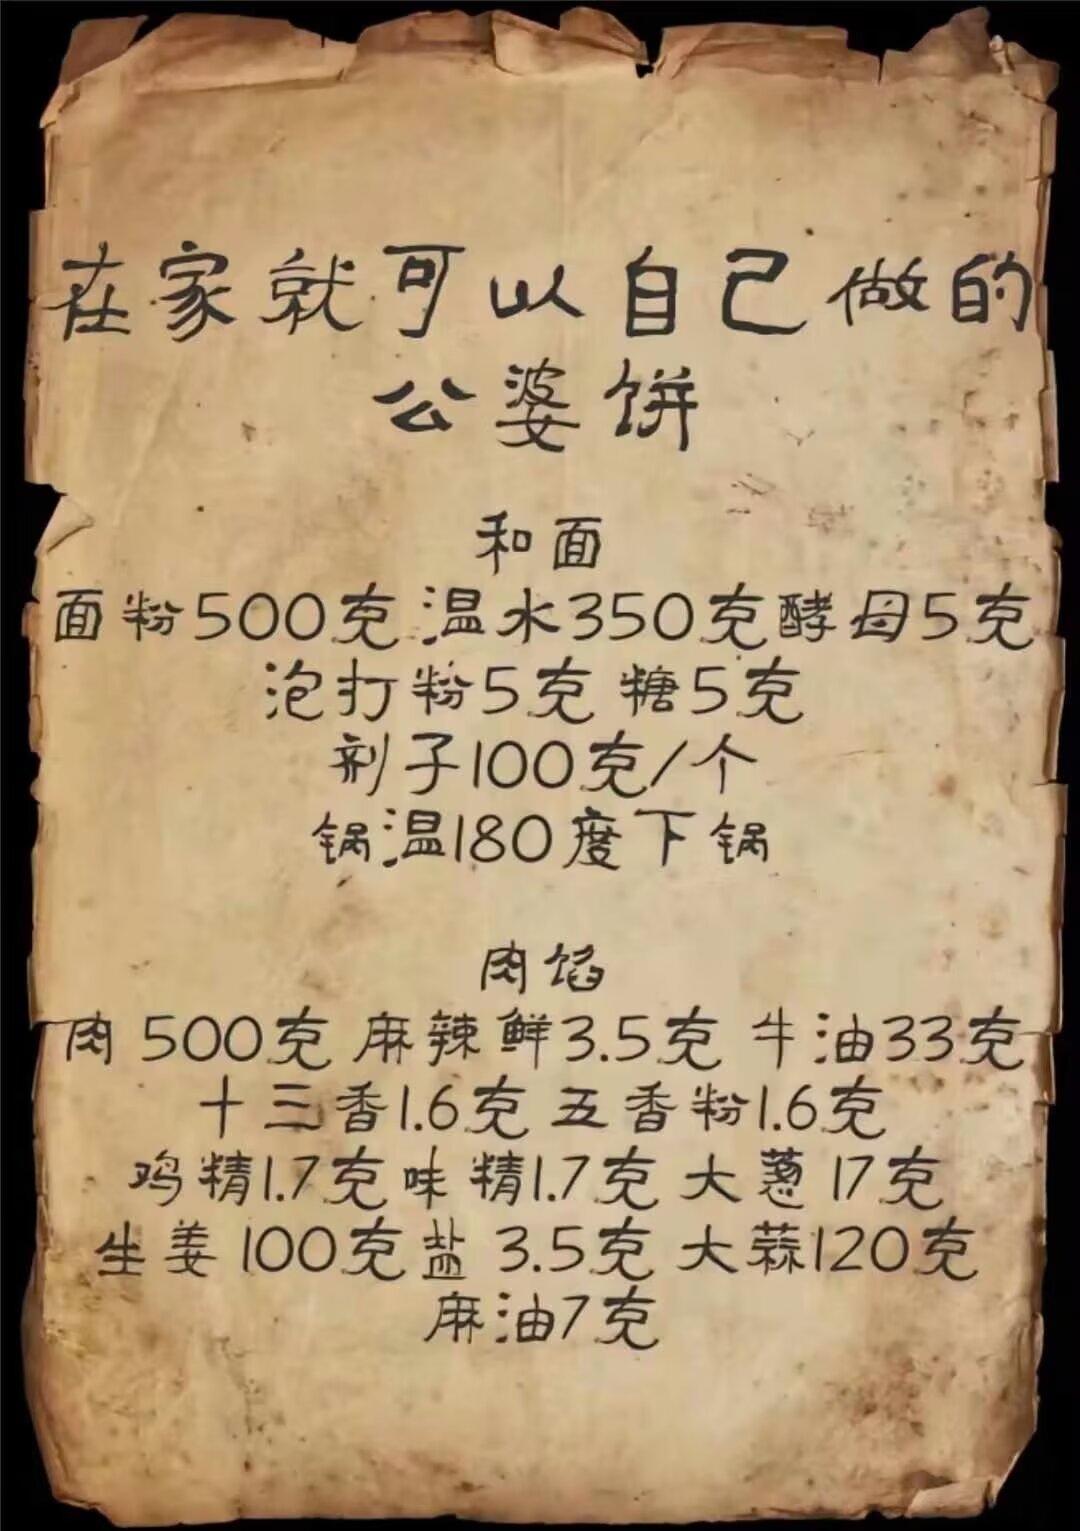 在家就可以自己做的
公婆饼
和面
面粉500克 温水350克酵母5克
泡打粉5克 糖5克
剂子100克/个
锅温180度下锅
肉馅
肉 500克 麻辣鲜3.5克 牛油33克
十三香1.6克 五香粉1.6克
鸡精1.7克味精1.7克 大葱 17克
生姜 100克盐 3.5克 大蒜120克
麻油7克